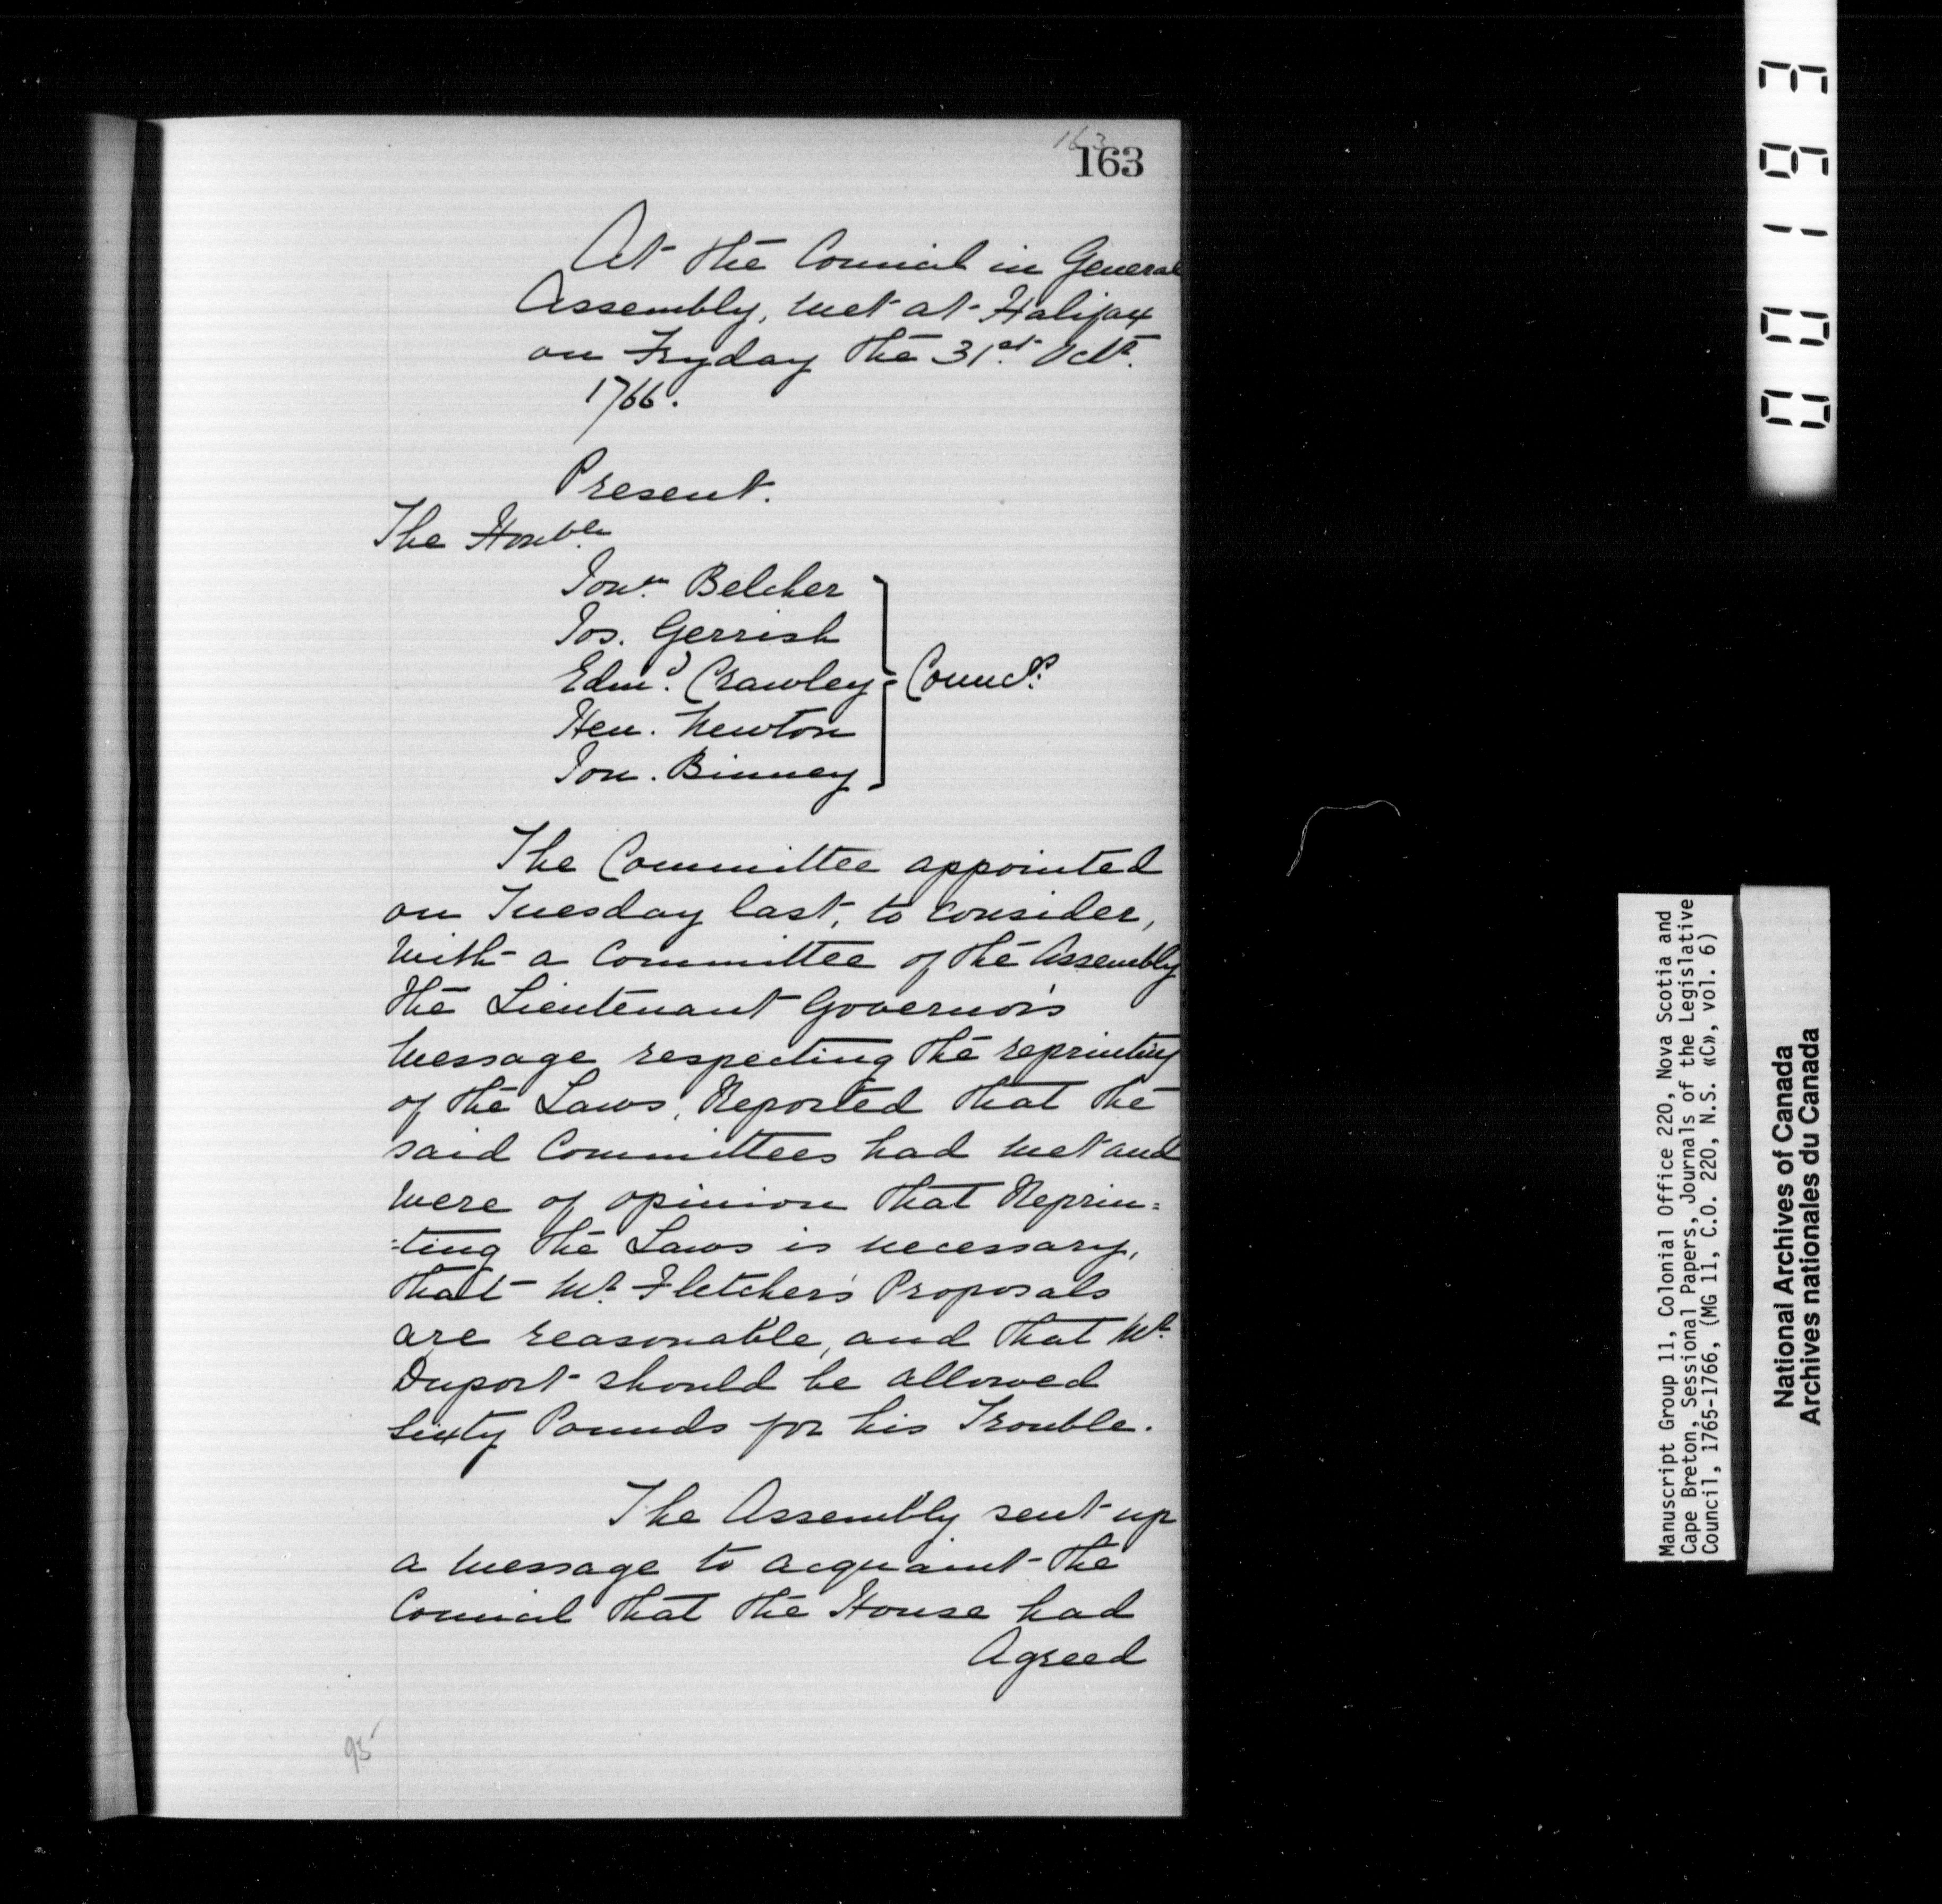 163
163
At the Council in General
Assembly, met at Halifax
on Fryday the 31st. Octr.
1766.
Present.
The Honble.
Jonn. Belcher
Jos. Gerrish
Edmd. Crawley
Hen. Newton
Jon. Binney
Councrs.
The Committee appointed
on Tuesday last, to consider,
with a Committee of the Assembly
the Lieutenant Governor's
message respecting the reprinting
of the Laws, Reported that the
said Committees had met and
were of opinion that Reprin=
=ting the Laws is necessary,
that Mr. Fletcher's Proposals
are reasonable, and that Mr.
Duport should be allowed
sixty Pounds for his Trouble.
The Assembly sent up
a message to acquaint the
Council that the House had
Agreed
95
00193
Manuscript Group 11, Colonial Office 220, Nova Scotia and
Cape Breton, Sessional Papers, Journals of the Legislative
Council, 1765-1766, (MG 11, C.O. 220, N.S. «C», vol. 6)
National Archives of Canada
Archives nationales du Canada